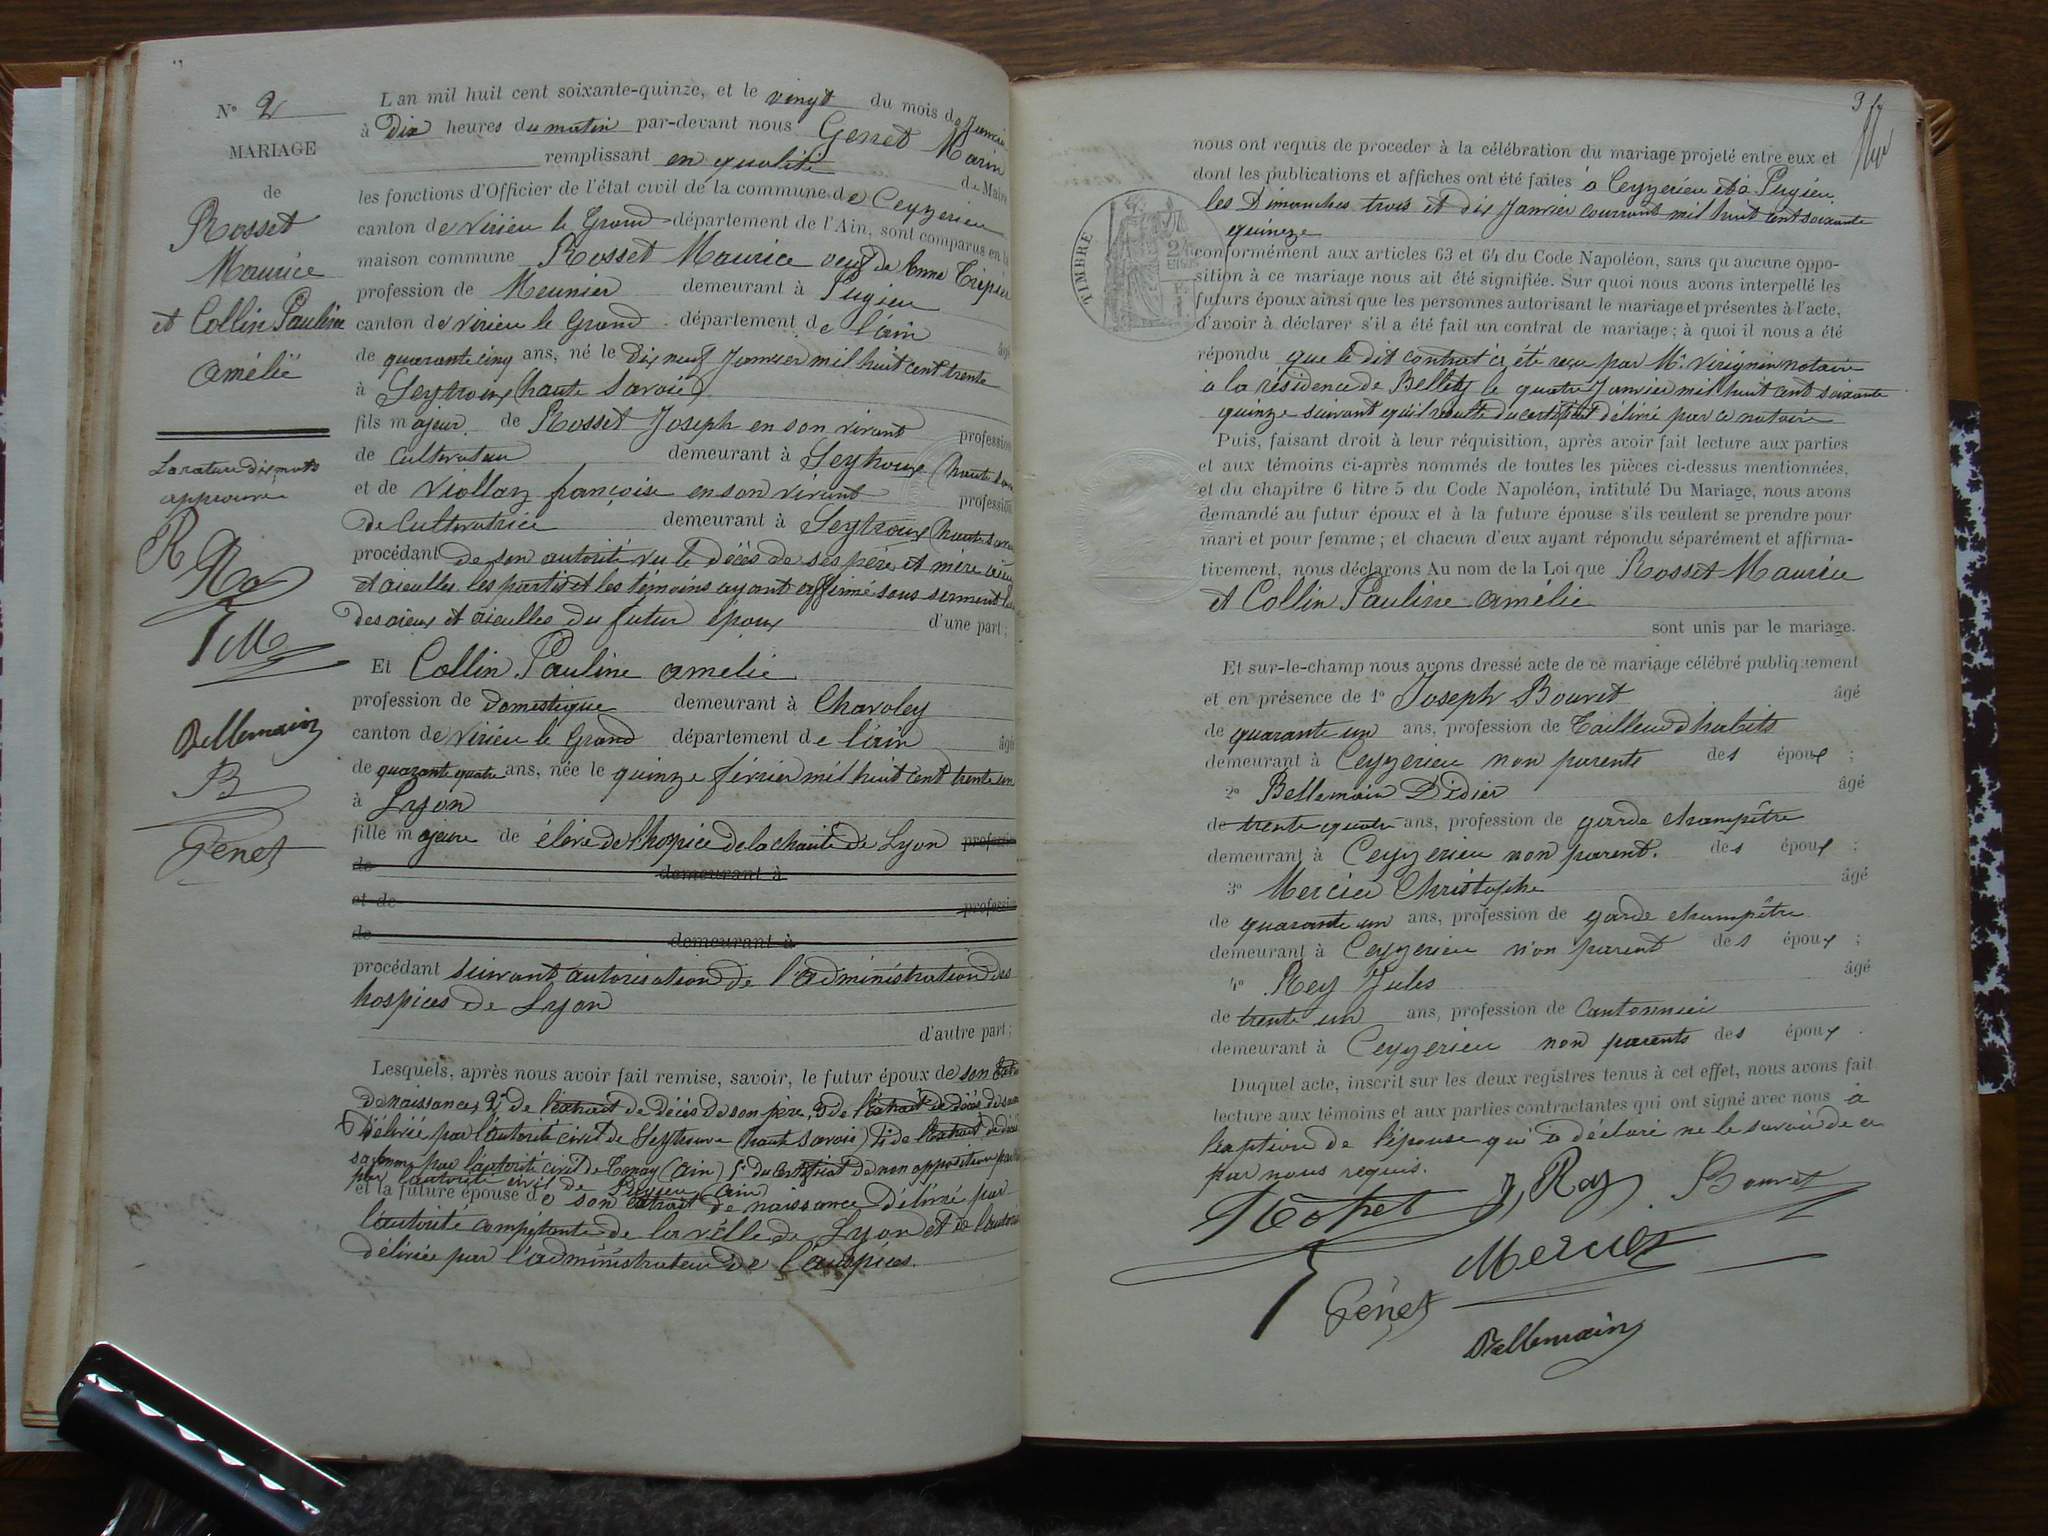 N° 2
MARIAGE
de
Rosset
Maurice
et Collin Pauline
amélie
La rature dix mots
approuvée
R
Rey
M
Bellemain
B
Genet
L'an mil huit cent soixante-quinze, et le vingt du mois de Janvier
à Dix heures du matin par-devant nous Genet Marin
remplissant en qualité de Maire
les fonctions d'Officier de l'état civil de la commune de Ceyzerieu
canton de Virieu le Grand département de l'Ain, sont comparus en la
maison commune Rosset Maurice veuf de Anne Tripier
profession de Meunier demeurant à Pugieu
canton de Virieu le Grand département de l'ain âgé
de quarante cinq ans, né le Dix neuf Janvier mil huit cent trente
à Seytroux (haute Savoie)
fils majeur de Rosset Joseph en son vivant profession
de Cultivateur demeurant à Seytroux (haute Savoie
et de Viollaz françoise en son vivant profession
de Cultivatrice demeurant à Seytroux (haute Savoie
procédant de son autorité vu le décès de ses père et mère aïeux
et aieulles les parties et les témoins ayant affirmé sous serment le
des aïeux et aieulles du futur époux d'une part;
Et Collin Pauline amelie
profession de Domestique demeurant à Chavoley
canton de Virieu le Grand département de l'ain âgée
de quarante quatre ans, née le quinze février mil huit cent trente un
à Lyon
fille majeure de élève de l'hospice de la charité de Lyon profession
de demeurant à
et de profession
de demeurant à
procédant suivant autorisation de l'administration des
hospices de Lyon
d'autre part;
Lesquels, après nous avoir fait remise, savoir, le futur époux de son Extrait
de naissance, 2° de l'extrait de décès de son père, 3 de l'extrait de décès de sa mère
Délivré par l'autorité civil de Seytroux (haute Savoie) 4° de l'Extrait de décès
sa femme par l'autorité civil de (ain) 5° du Certificat de non opposition
par l'autorité civil de Pugieu (ain)
et la future épouse de son extrait de naissance délivré par
l'autorité compétante de la ville de Lyon et de l'autorisation
délivrée par l'administrateur de l'auspices.
3
TIMBRE
nous ont requis de procéder à la célébration du mariage projeté entre eux et
dont les publications et affiches ont été faites à Ceyzerieu et à Pugieu
les Dimanches trois et dix Janvier courrant mil huit cent soixante
quinze
conformément aux articles 63 et 64 du Code Napoléon, sans qu'aucune oppo-
sition à ce mariage nous ait été signifiée. Sur quoi nous avons interpellé les
futurs époux ainsi que les personnes autorisant le mariage et présentes à l'acte,
d'avoir à déclarer s'il a été fait un contrat de mariage; à quoi il nous a été
répondu que le dit contrat a été reçu par Me Virignin notaire
a la résidence de Belley le quatre Janvier mil huit cent soixante
quinze suivant qu'il résulte du certificat délivré par ce notaire
Puis, faisant droit à leur réquisition, après avoir fait lecture aux parties
et aux témoins ci-après nommés de toutes les pièces ci-dessus mentionnées,
et du chapitre 6 titre 5 du Code Napoléon, intitulé Du Mariage, nous avons
demandé au futur époux et à la future épouse s'ils veulent se prendre pour
mari et pour femme; et chacun d'eux ayant répondu séparément et affirma-
tivement, nous déclarons Au nom de la Loi que Rosset Maurice
et Collin Pauline amélie
sont unis par le mariage.
Et sur-le-champ nous avons dressé acte de ce mariage célébré publiquement
et en présence de 1° Joseph Bouvet âgé
de quarante un ans, profession de Tailleur d'habits
demeurant à Ceyzerieu non parents des époux;
2° Bellemain Didier âgé
de trente quatre ans, profession de garde champêtre
demeurant à Ceyzerieu non parent. des époux;
3° Mercier Christophe âgé
de quarante un ans, profession de garde champêtre
demeurant à Ceyzerieu non parent des époux;
4° Rey Jules âgé
de trente un ans, profession de Cantonnier
demeurant à Ceyzerieu non parents des époux.
Duquel acte, inscrit sur les deux registres tenus à cet effet, nous avons fait
lecture aux témoins et aux parties contractantes qui ont signé avec nous à
l'exption de l'épouse qui a déclaré ne le savoir de ce
par nous requis.
Rosset J, Rey Bouvet
Mercier
Genet
Bellemain